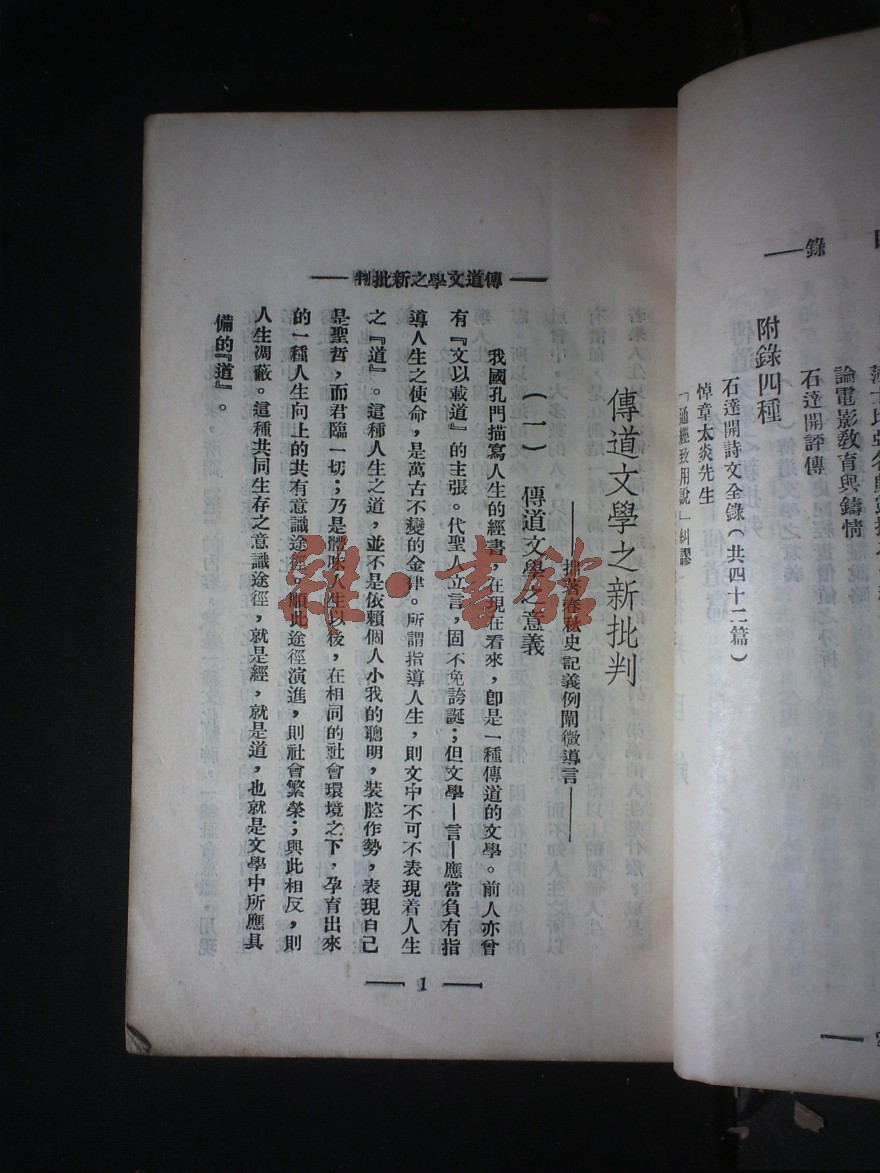 錄
論電影教育與鑄情
石達開評傳
附錄四種
石達開詩文全錄(共四十二篇)
悼章太炎先生
「通經致用說」糾謬
傳道文學之新批判
傳道文學之新批判
——拙著春秋史記義例闡微導言——
(一) 傳道文學之意義
我國孔門描寫人生的經書,在現在看來,卽是一種傳道的文學。前人亦曾
有『文以載道』的主張。代聖人立言,固不免誇誕;但文學—言—應當負有指
導人生之使命,是萬古不變的金律。所謂指導人生,則文中不可不表現着人生
之『道』。這種人生之道,並不是依賴個人小我的聰明,裝腔作勢,表現自己
是聖哲,而君臨一切;乃是體味人生以後,在相同的社會環境之下,孕育出來
的一種人生向上的共有意識途徑,順此途徑演進,則社會繁榮;與此相反,則
人生凋蔽。這種共同生存之意識途徑,就是經,就是道,也就是文學中所應具
備的『道』。
1
雜·書館